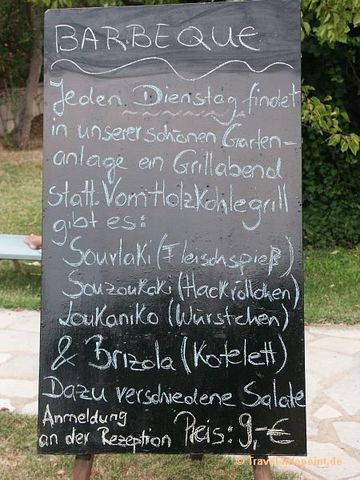 BARBEQUE
Jeden Dienstag findet
in unserer schönen Garten-
anlage ein Grillabend
statt. Vom Holzkohlegrill
gibt es:
Souvlaki (Fleischspieß)
Souzoukaki (Hackröllchen)
Loukaniko (Würstchen)
& Brizola (Kotelett)
Dazu verschiedene Salate
Anmeldung
an der Rezeption Preis: 9,-€